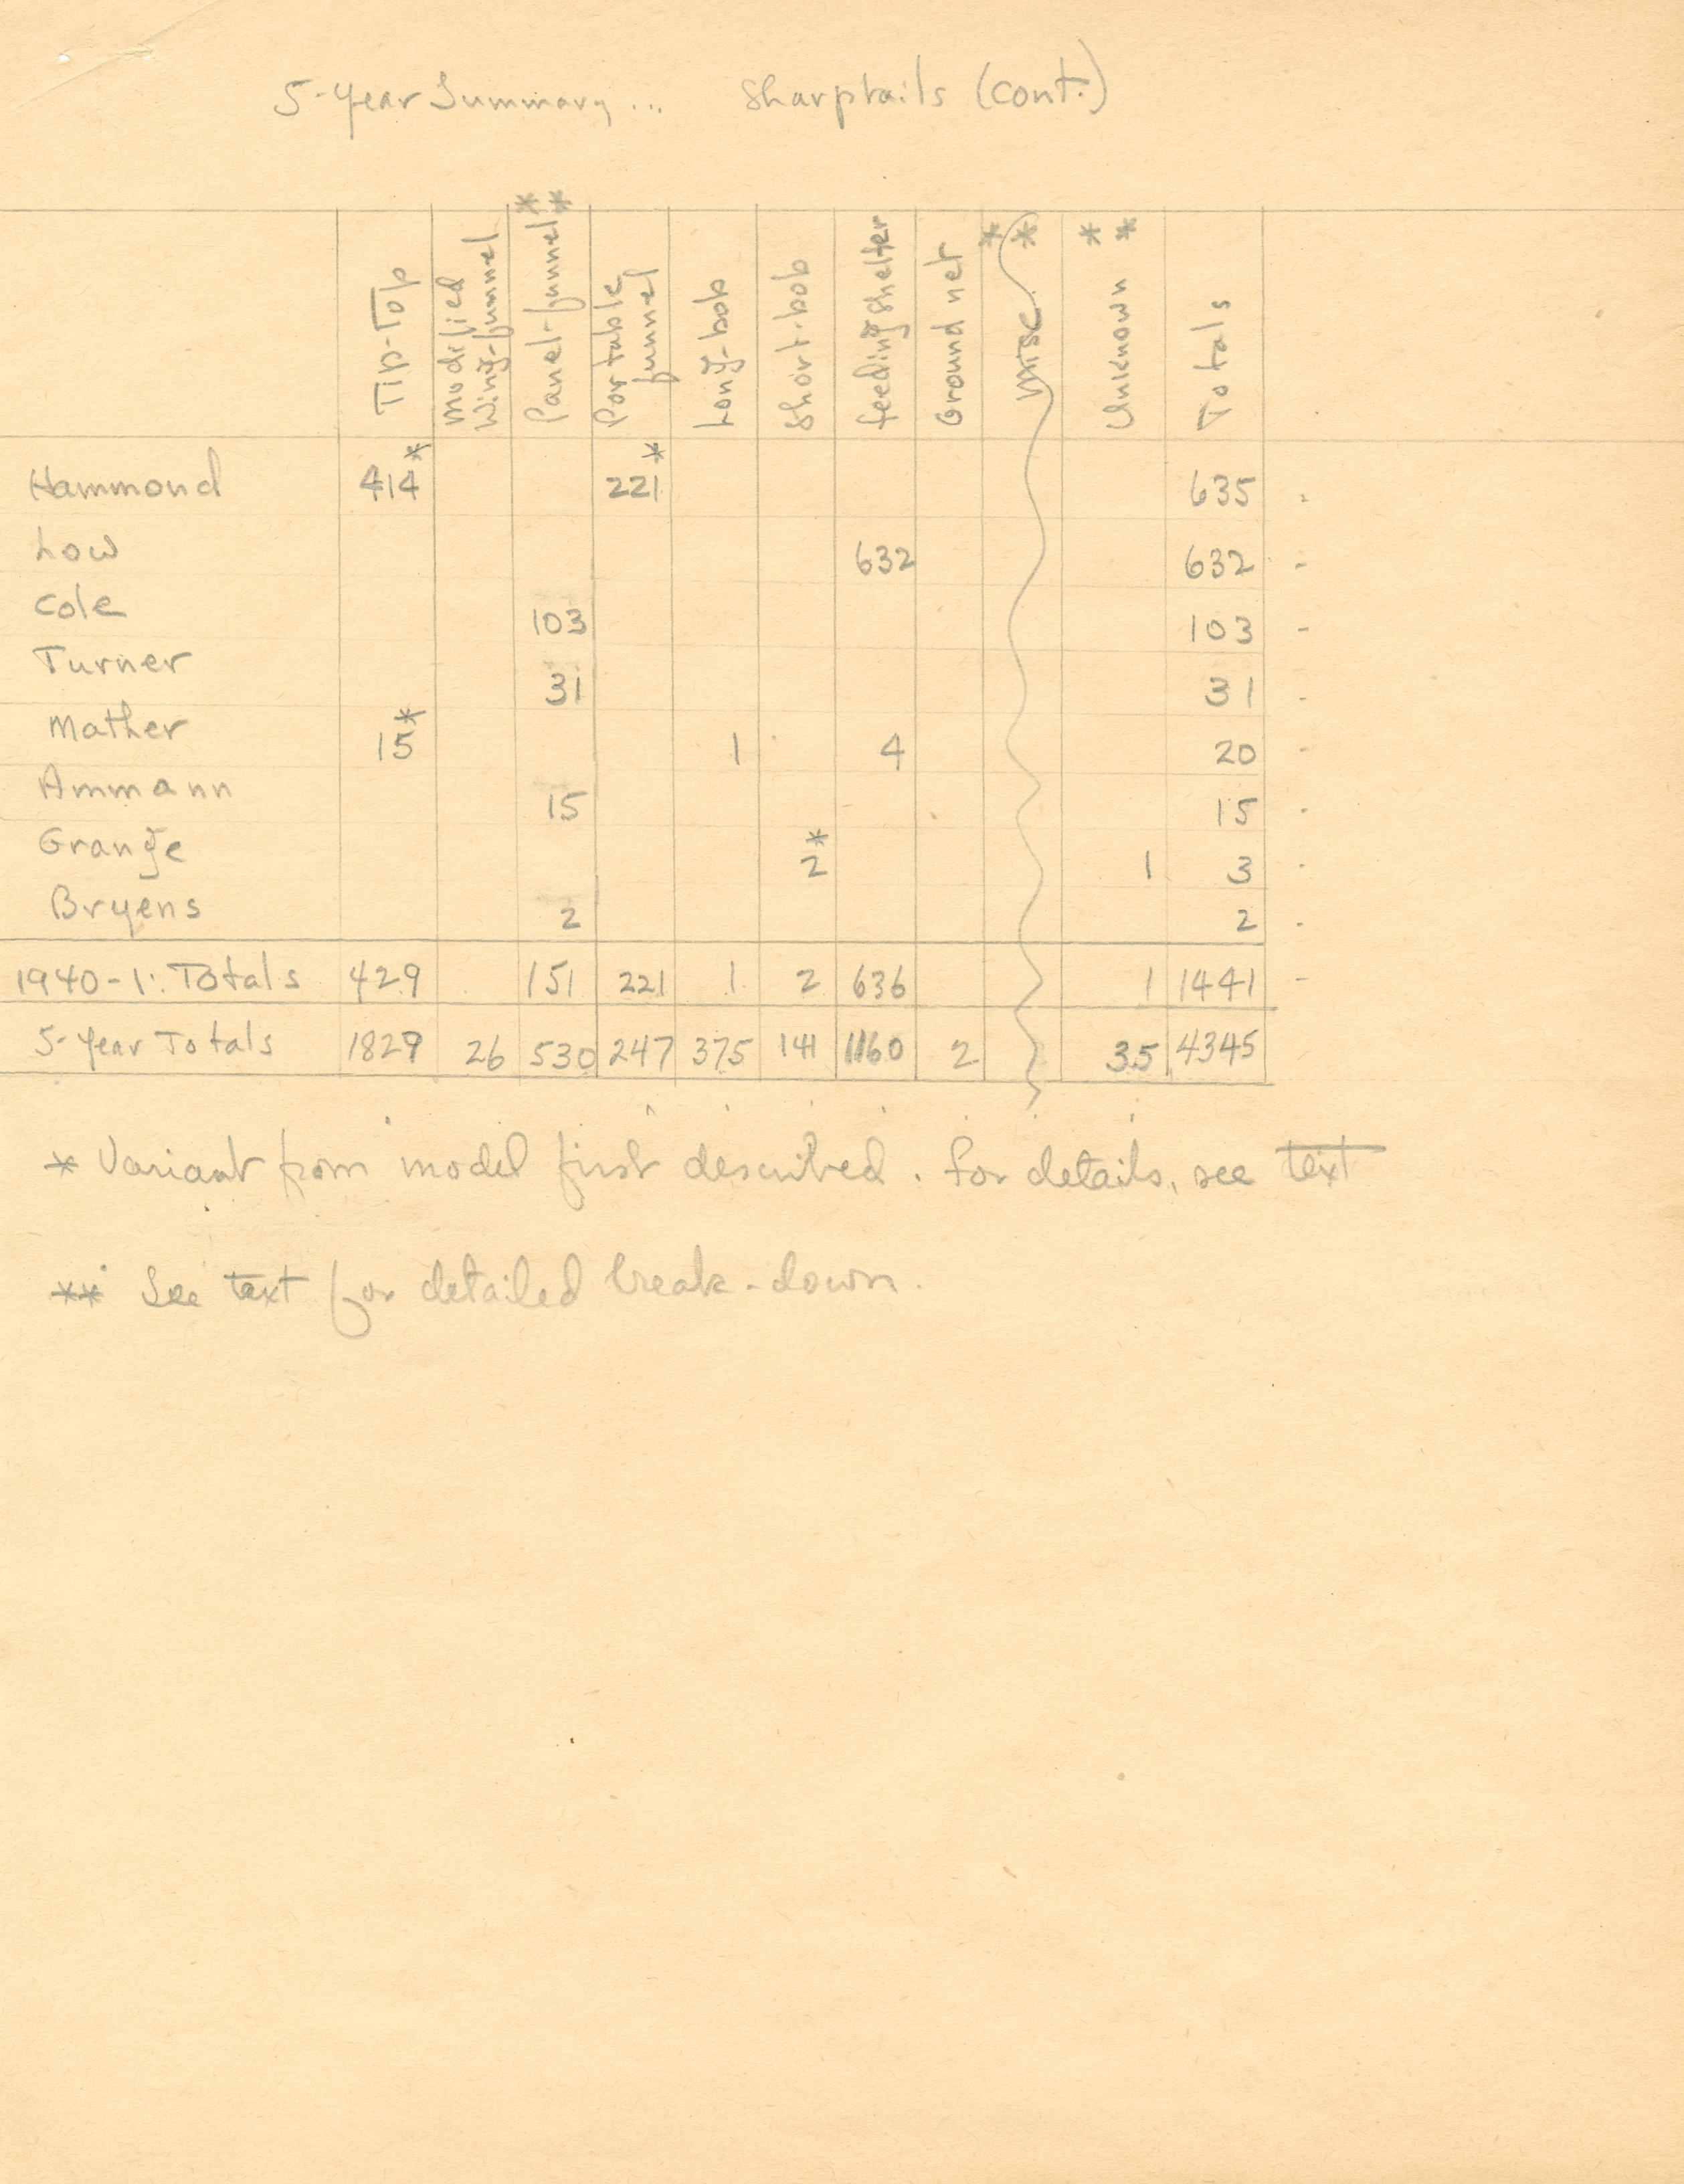 5-Year Summary ... Sharptails (cont.)
Tip-Top Modified Wing-funnel Panel-funnel** Portable funnel Long-bob Short-bob Feeding Shelter Ground net Misc** Unknown** Totals
Hammond 414* 221* 635
Low 632 632
Cole 103 103
Turner 31 31
Mather 15* 1 4 20
Ammann 15 15
Grange 2* 1 3
Bryens 2 2
1940-1: Totals 429 151 221 1 2 636 1 1441
5-Year Totals 1829 26 530 247 375 141 1160 2 35 4345
* Variant from model first described. For details, see text
** See text for detailed break-down.